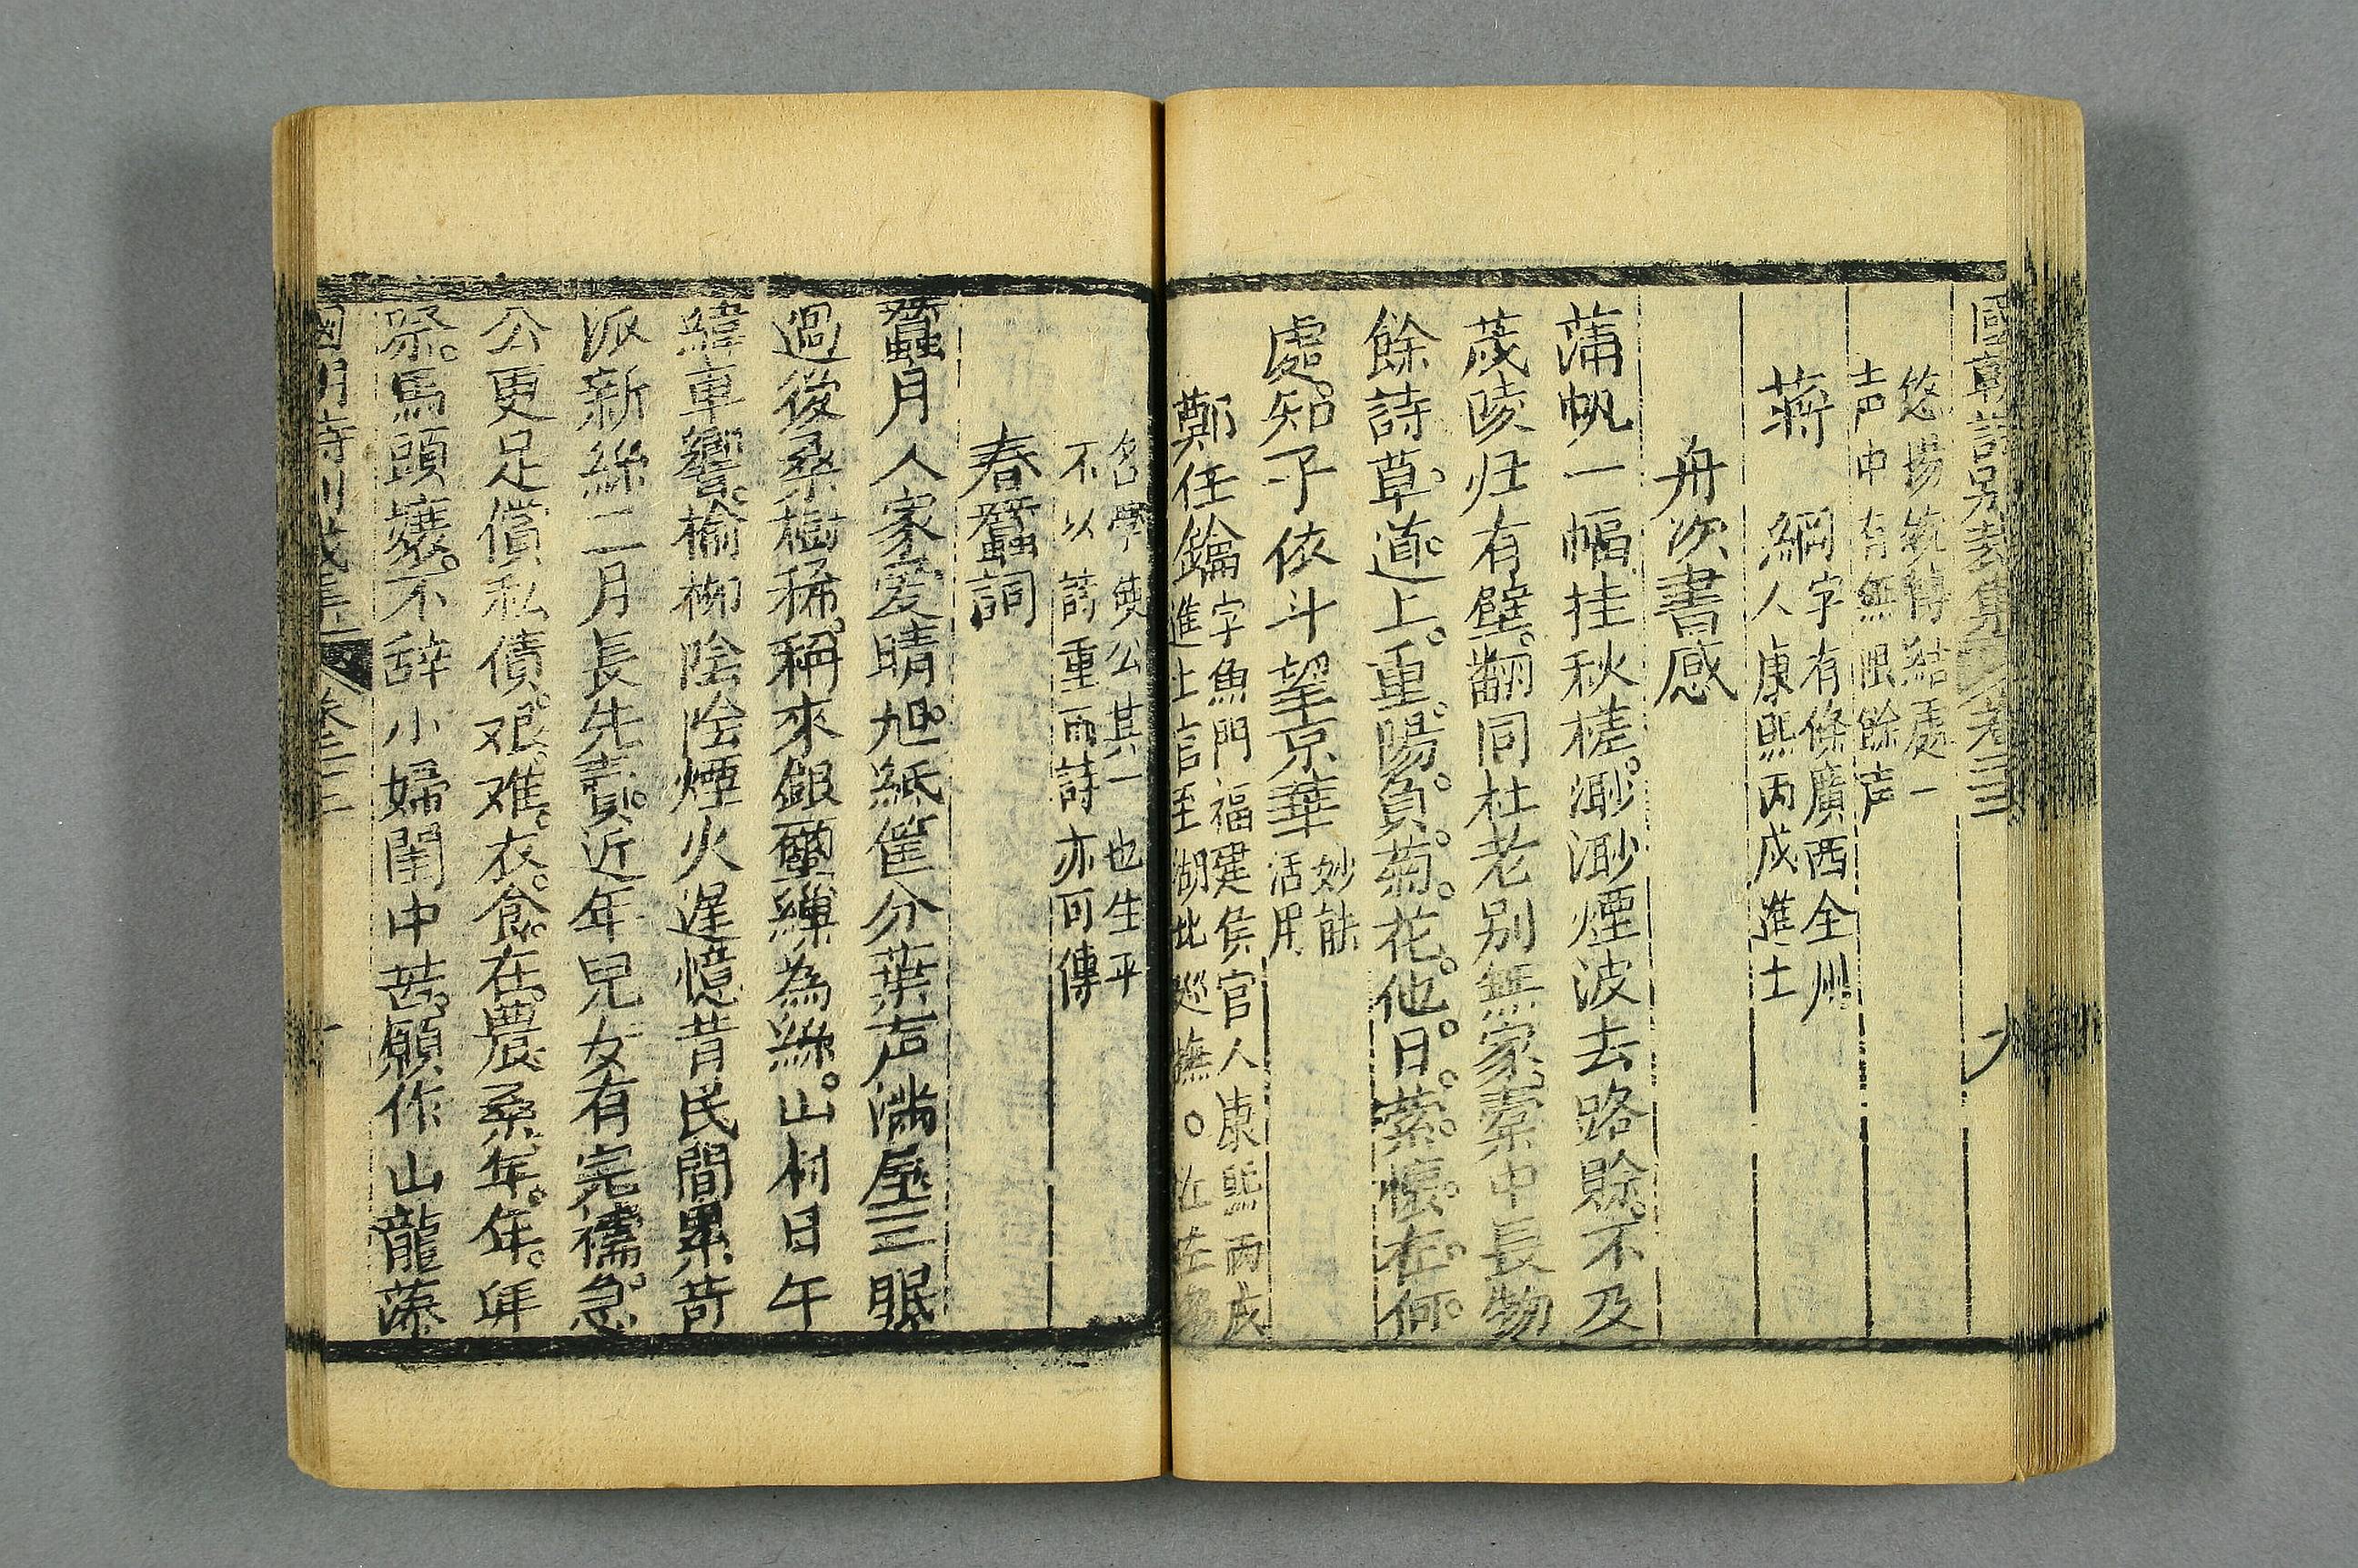 國朝詩別裁集 卷三三 九
悠揚統轉結處一
声中有無限餘声
蒋 綱 字有條廣西全州
人康熙丙戌進士
舟次書感
蒲帆一幅挂秋槎渺渺煙波去路賖不及
茂陵归有壁翻同杜老别無家橐中長物
餘詩草道上重陽負菊花他日縈懷在何
處知予依斗望京華 妙能
活用
鄭任鑰 字魚門福建侯官人康熙丙戌
進士官至湖北巡撫
名學使公其一也生平
不以詩重而詩亦可傳
春蠶詞
蠶月人家愛晴旭紙窗分葉声満屋三眠
過後桑樹稀稱來銀繭繅為絲山村日午
緯車響榆柳陰陰煙火遲憶昔民間累苛
派新絲二月長先賣近年兒女有完襦急
公更足償私債艰难衣食在農桑年年年
祭馬頭孃不辞小婦閨中苦願作山龍藻
國朝詩別裁集 卷三三 十